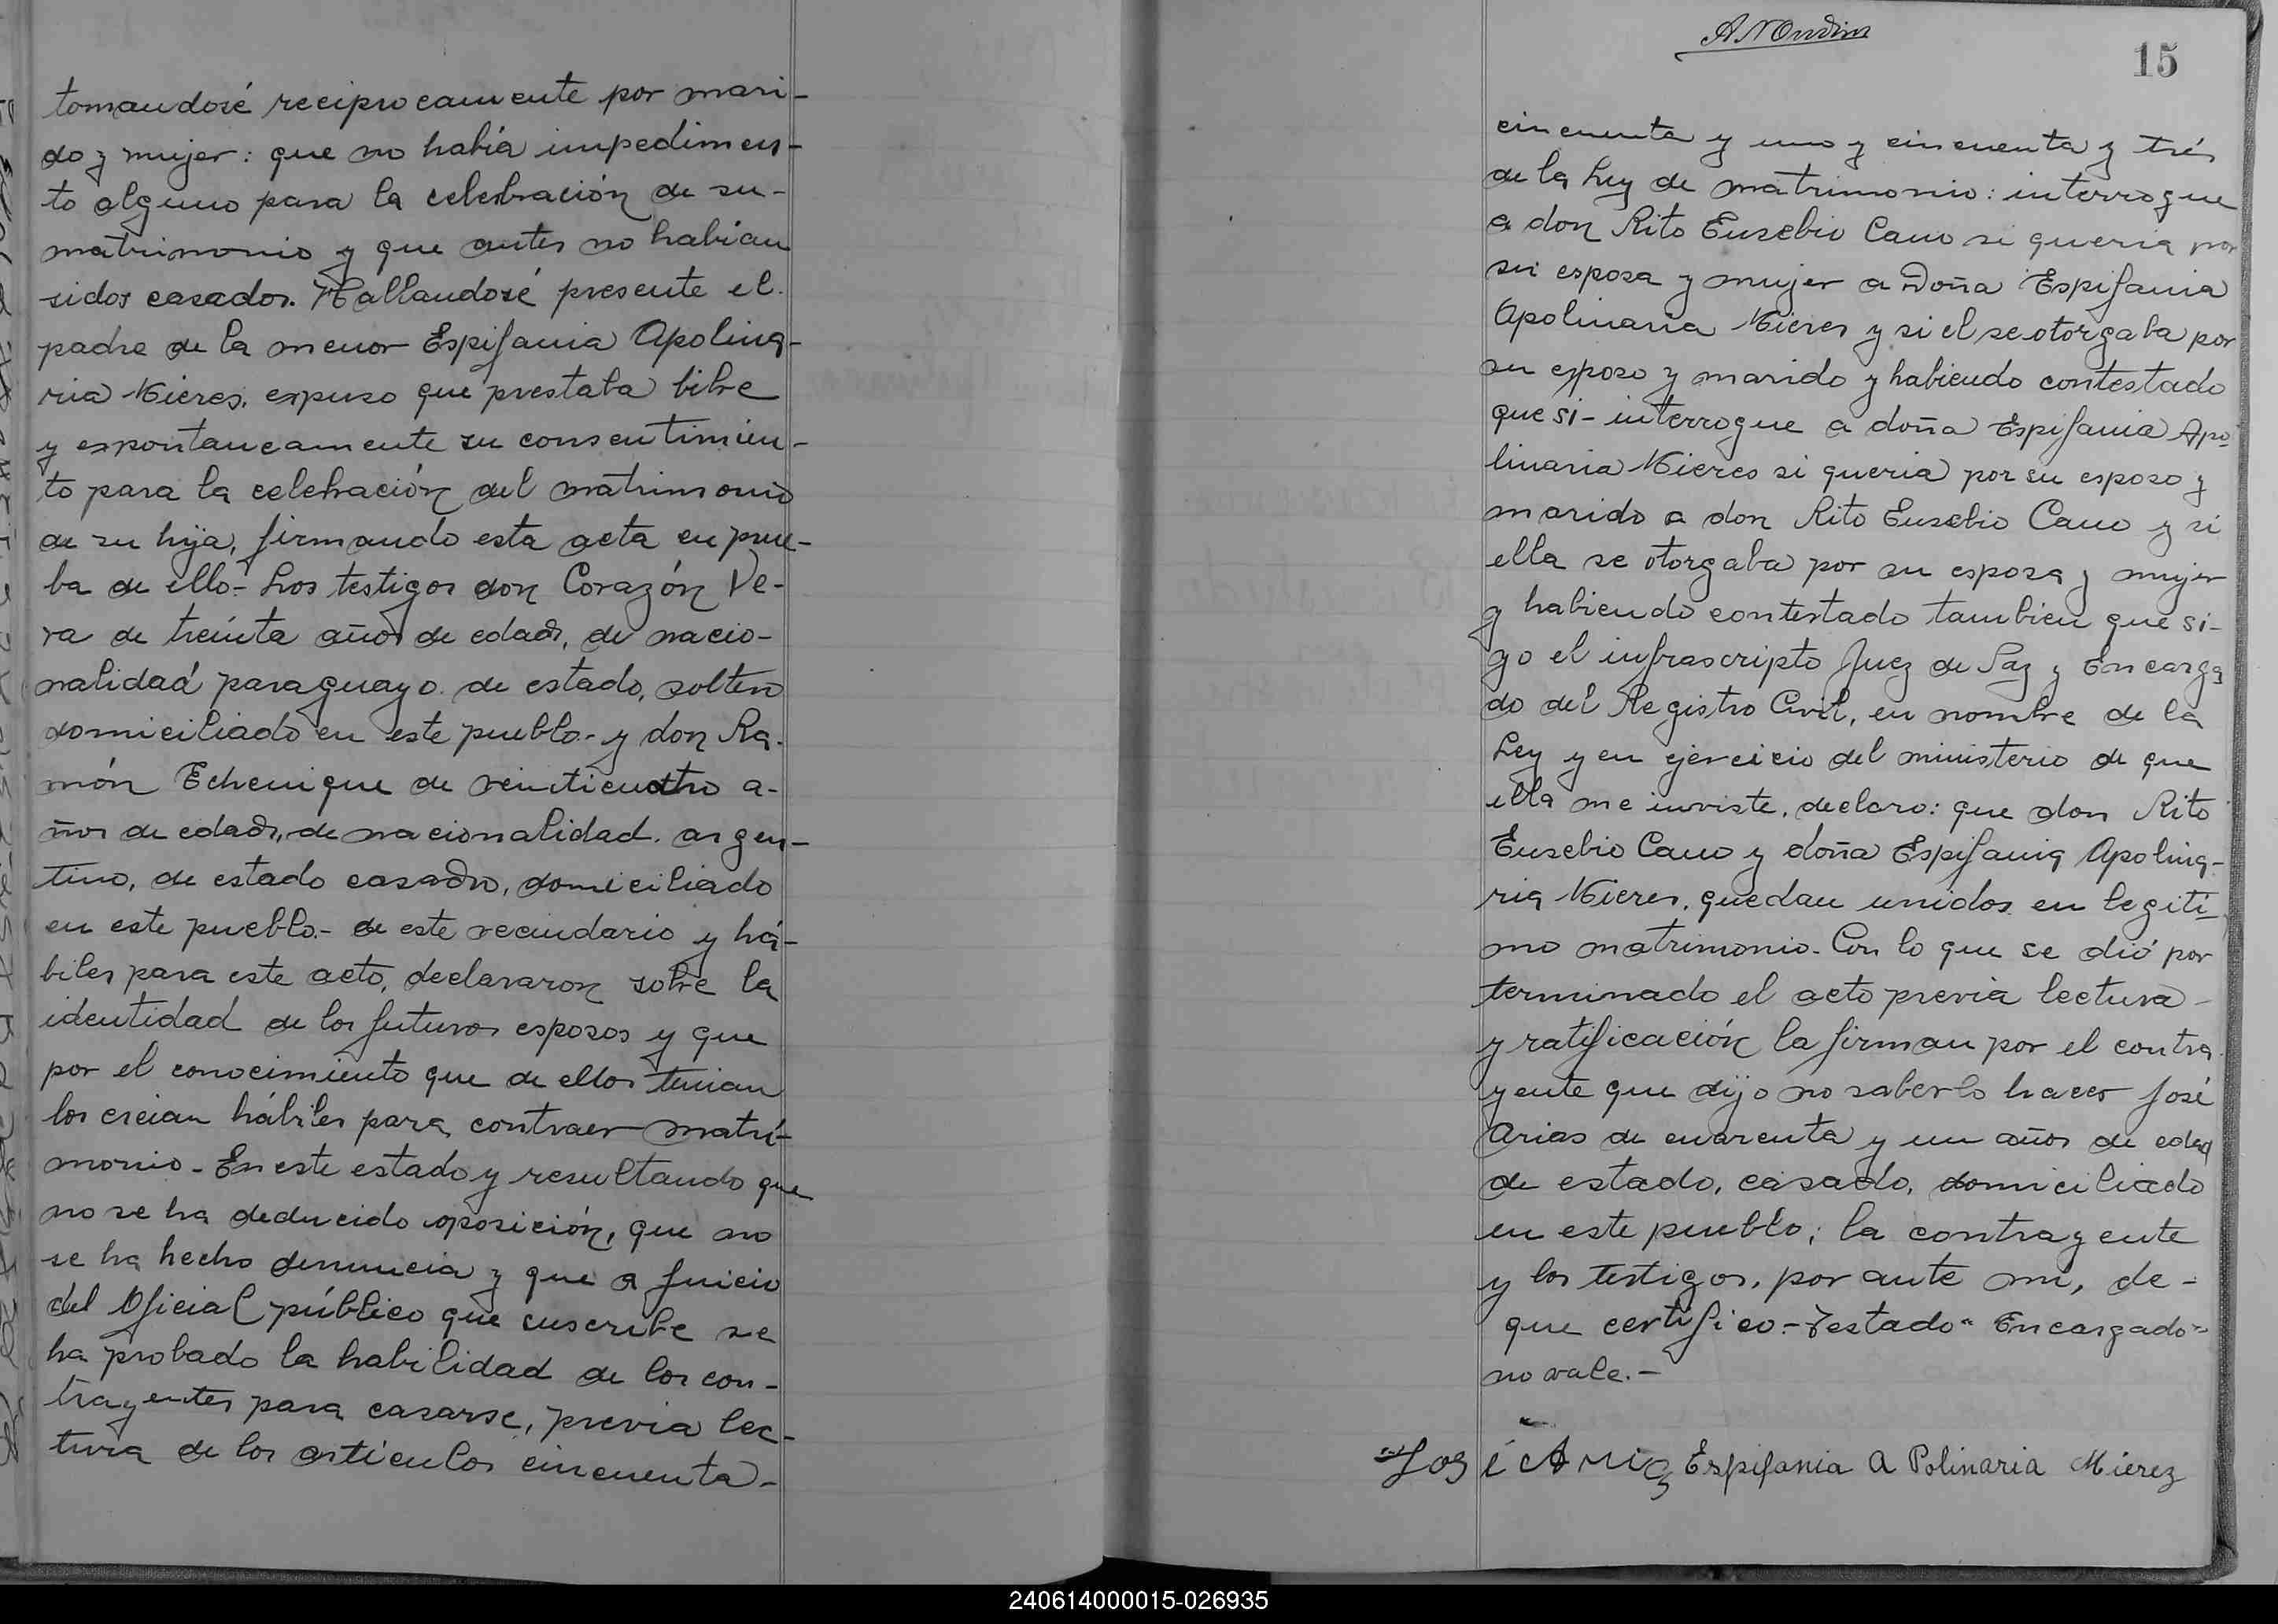 tomandosé reciprocamente por mari-
do y mujer: que no había impedimen-
to alguno para la celebración de su-
matrimonio y que antes no habian
sidos casados. Hallandosé presente el
padre de la menor Espifania Apolina-
ria Mieres, expuso que prestaba libre
y espontaneamente su consentimien-
to para la celebración del matrimonio
de su hija, firmando esta acta en prue-
ba de ello.- Los testigos don Corazón Ve-
ra de treinta años de edad, de nacio-
nalidad paraguayo de estado, soltero
domiciliado en este pueblo.- y don Ra-
món Echenique de veinticuatro a-
ños de edad, de nacionalidad argen-
tino, de estado casado, domiciliado
en este pueblo.- de este vecindario y há-
biles para este acto, declararon sobre la
identidad de los futuros esposos y que
por el conocimiento que de ellos tenian
los creian hábiles para contraer matri-
monio.- En este estado y resultando que
no se ha deducido oposición, que no
se ha hecho denuncia y que a juicio
del Oficial público que suscribe se
ha probado la habilidad de los con-
trayentes para casarse, previa lec-
tura de los artículos cincuenta-
15
cincuenta y uno y cincuenta y trés
de la Ley de matrimonio: interrogue
a don Rito Eusebio Cano si queria por
su esposa y mujer a Doña Espifania
Apolinaria Mieres y si el se otorgaba por
su esposo y marido y habiendo contestado
que si- interrogue a doña Espifania Apo-
linaria Mieres si queria por su esposo y
marido a don Rito Eusebio Cano y si
ella se otorgaba por su esposa y mujer
y habiendo contestado tambien que si-
yo el infrascripto Juez de Paz y Encarga
do del Registro Civil, en nombre de la
Ley y en ejercicio del ministerio de que
ella me inviste, declaro: que don Rito
Eusebio Cano y doña Espifania Apolina-
ria Mieres, quedan unidos en legiti
mo matrimonio- Con lo que se dió por
terminado el acto previa lectura-
y ratificación la firman por el contra
yente que dijo no saberlo hacer José
Arias de cuarenta y un años de edad
de estado, casado, domiciliado
en este pueblo; la contrayente
y los testigos, por ante mi, de-
que certifico.- Testado "Encargado"
no vale.-
José Arias Espifania A Polinaria Mierez
240614000015-026935